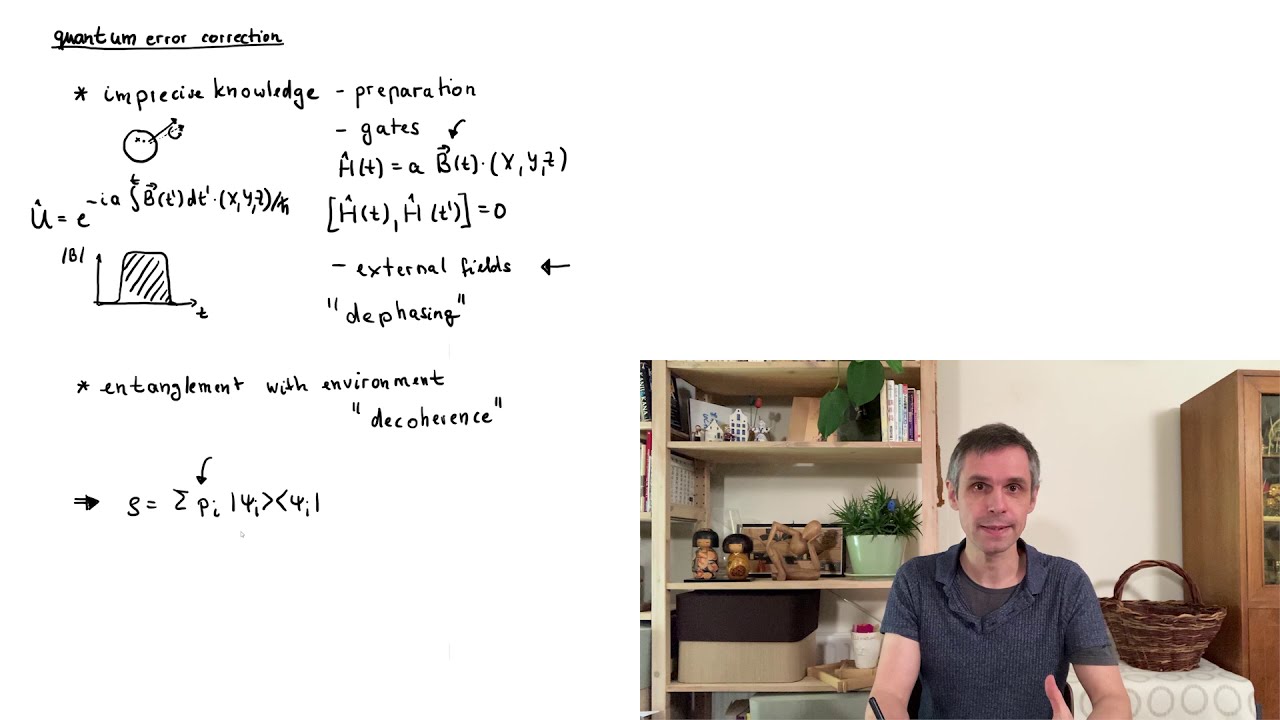 quantum error correction
* imprecise knowledge - preparation
- gates
Ĥ(t) = a B⃗(t)·(X,Y,Z)
Û = e^{-ia ∫^t B⃗(t')dt'·(X,Y,Z)/ħ}
[Ĥ(t), Ĥ(t')] = 0
|B|
t
- external fields ←
"dephasing"
* entanglement with environment
"decoherence"
⇒ ρ = Σ p_i |ψ_i><ψ_i|